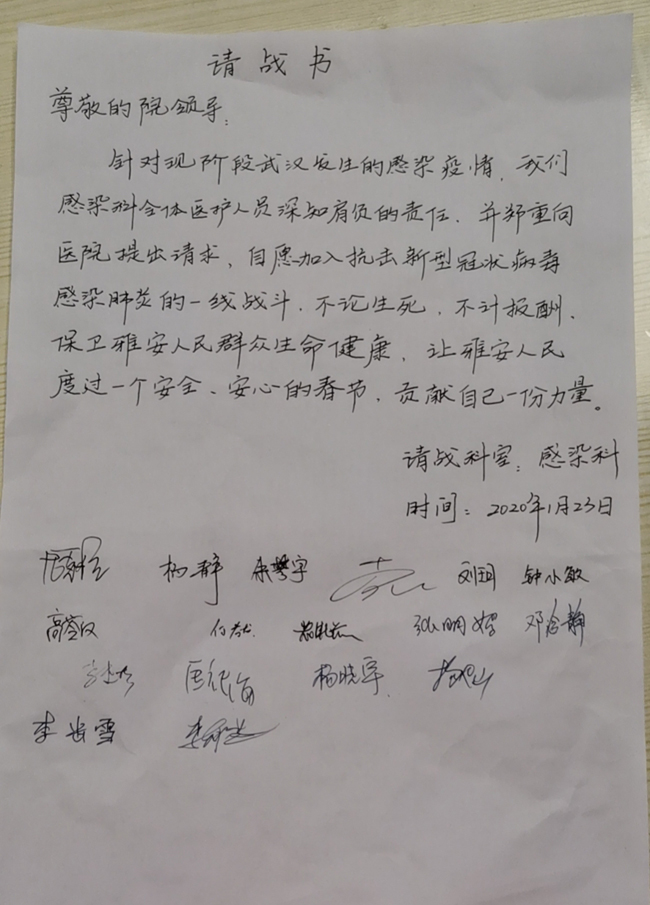 请战书
尊敬的院领导:
针对现阶段武汉发生的感染疫情,我们
感染科全体医护人员深知肩负的责任,并郑重向
医院提出请求,自愿加入抗击新型冠状病毒
感染肺炎的一线战斗,不论生死,不计报酬,
保卫雅安人民群众生命健康,让雅安人民
度过一个安全、安心的春节,贡献自己一份力量。
请战科室:感染科
时间:2020年1月23日
杨静 刘玥 钟小敏
杨晓军